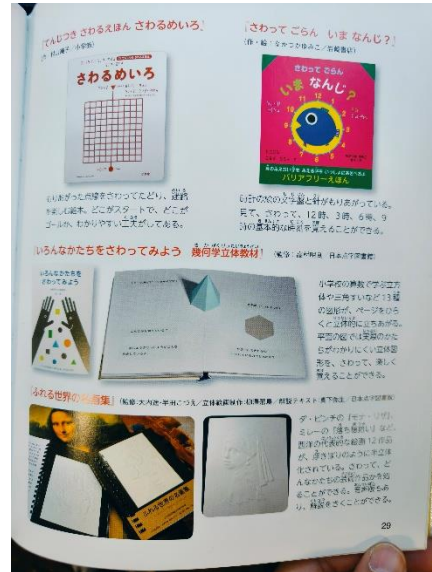 『てんじつき さわるえほん さわるめいろ』
さわるめいろ
もりあがった点線をさわってたどり、迷路
を楽しむ絵本。どこがスタートで、どこが
ゴールか、わかりやすい工夫がしてある。
『さわって ごらん いま なんじ？』
（作・絵：なかつかゆみこ／岩崎書店）
さわって ごらん
いま なんじ？
バリアフリーえほん
時計の絵の文字盤と針がもりあがっている。
見て、さわって、12時、3時、6時、9
時の基本的な時刻を覚えることができる。
『いろんなかたちをさわってみよう 幾何学立体教材』
日本点字図書館）
いろんなかたちを
さわってみよう
小学校の算数で学ぶ立方
体や三角すいなど13種
の図形が、ページをひら
くと立体的に立ちあがる。
平面の図では実際のかた
ちがわかりにくい立体図
形を、さわって、楽しく
覚えることができる。
『ふれる世界の名画集』
日本点字図書館）
ふれる世界の名画集
ダ・ビンチの『モナ・リザ』、
ミレーの『落ち穂拾い』など、
西洋の代表的な絵画12作品
が、浮きぼりのように半立体
化されている。さわって、ど
んなかたちの芸術作品かを知
ることができる。音声版もあ
り、解説をきくことができる。
29